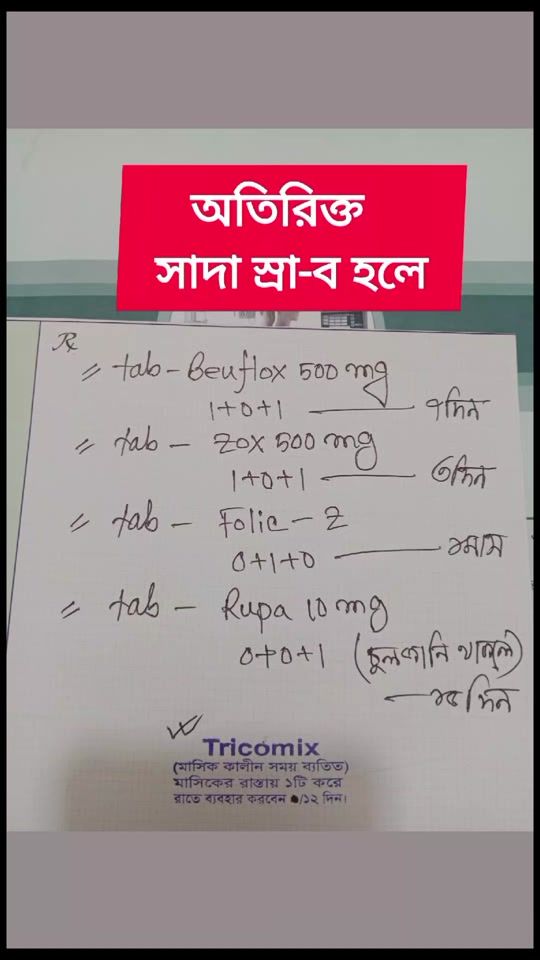 অতিরিক্ত
সাদা স্রা-ব হলে
Rx
= tab - Beuflox 500 mg
1+0+1 — ৭দিন
= tab - Zox 500 mg
1+0+1 — ৩দিন
= tab - Folic - Z
0+1+0 — ১মাস
= tab - Rupa 10 mg
0+0+1 (চুলকানি থাকলে)
— ১৫ দিন
Tricomix
(মাসিক কালীন সময় ব্যতিত)
মাসিকের রাস্তায় ১টি করে
রাতে ব্যবহার করবেন /১২ দিন।